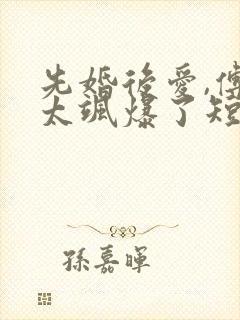 先婚後愛,傅
太颯爆了短
孫嘉暉